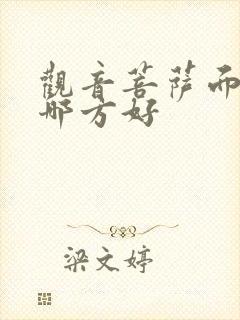 觀音菩薩而
哪方好
梁文婷